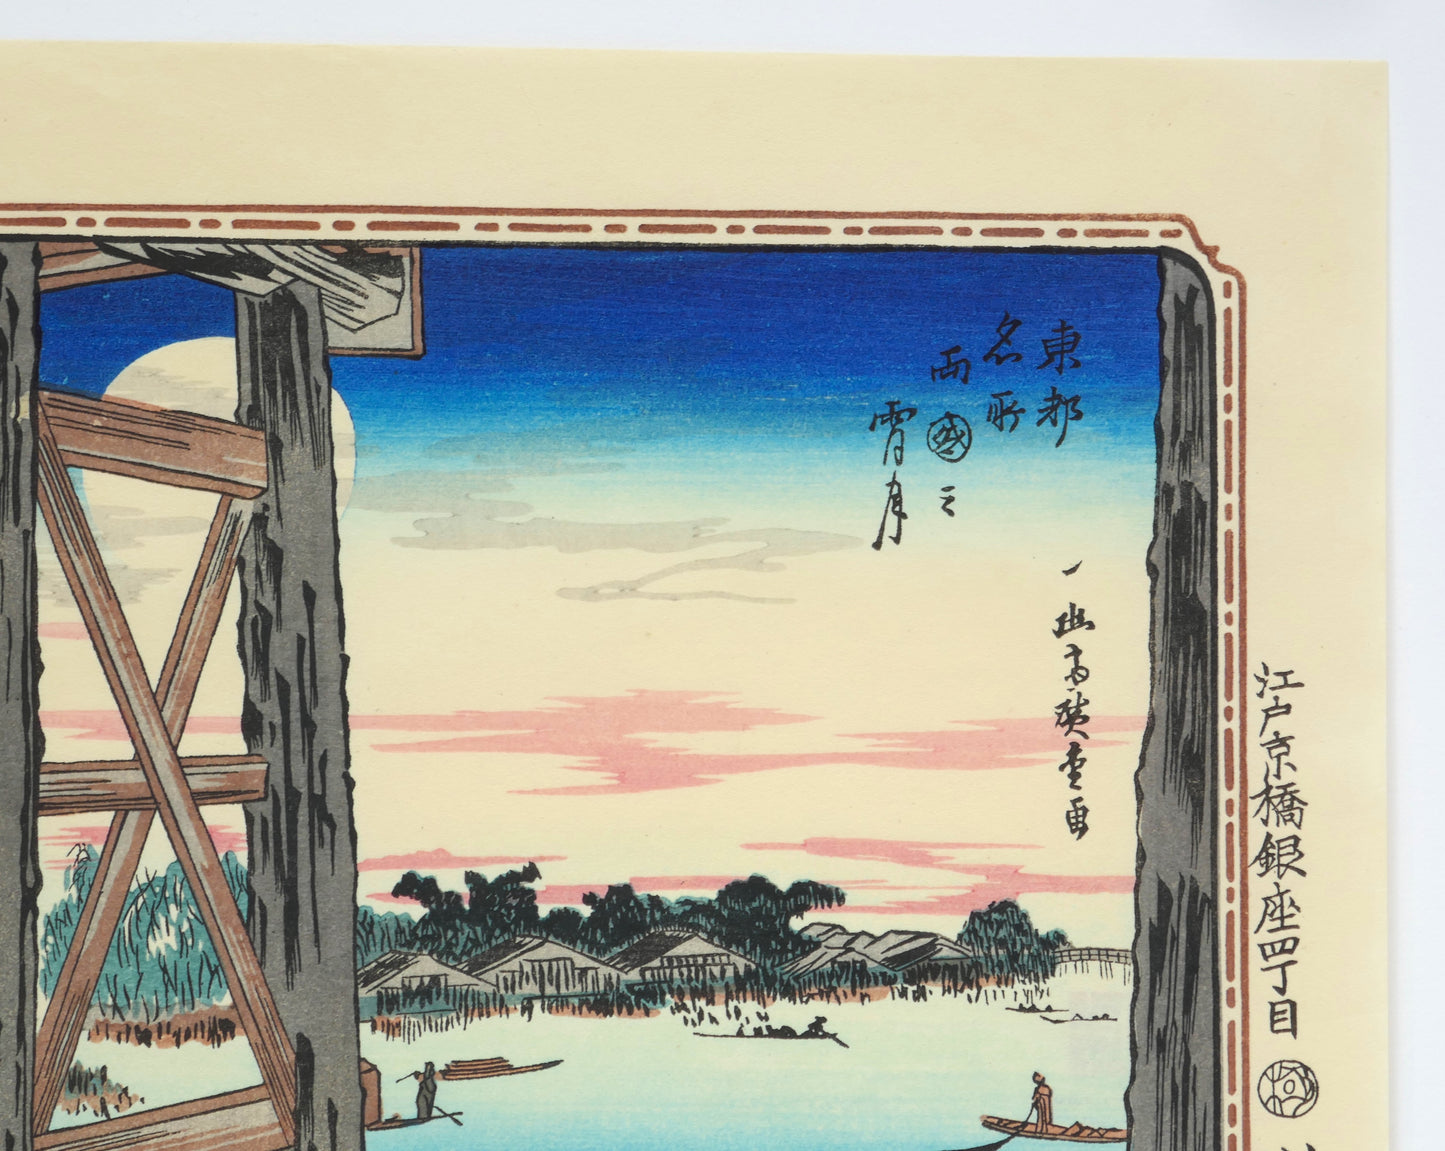 東都
名所
両国之
宵月
一幽斎廣重画
江戸京橋銀座四丁目